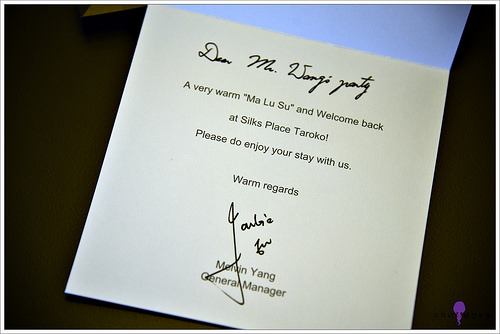 Dear Mr. Wang's party
A very warm "Ma Lu Su" and Welcome back
at Silks Place Taroko!
Please do enjoy your stay with us.
Warm regards
Melvin Yang
General Manager